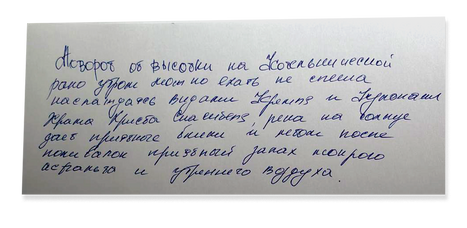 Поворот от высотки на Котельнической
рано утром можно ехать не спеша
наслаждаясь видами Кремля и куполами
Храма Христа Спасителя, река на солнце
дает приятные блики и летом после
поливалок приятный запах мокрого
асфальта и утреннего воздуха.